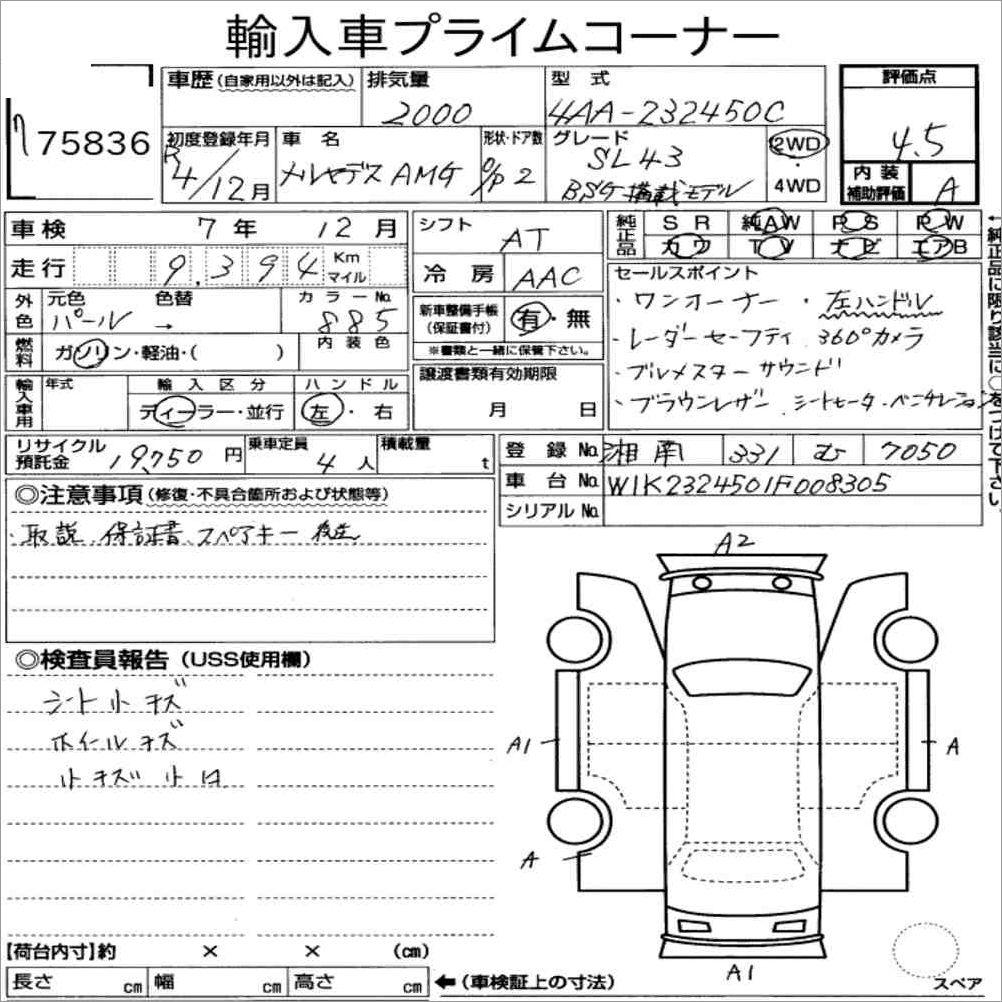 輸入車プライムコーナー
75836
車歴(自家用以外は記入)
排気量
2000
型式
4AA-232450C
評価点
4.5
初度登録年月
R4/12月
車名
メルセデスAMG
形状・ドア数
O/P 2
グレード
SL43
BSG搭載モデル
2WD
・
4WD
内装
補助評価
A
車検 7年 12月
シフト AT
純正品
SR 純AW PS PW
カワ TV ナビ エアB
走行 9,394 Km マイル
冷房 AAC
セールスポイント
・ワンオーナー ・左ハンドル
・レーダーセーフティ 360°カメラ
・ブルメスターサウンド
・ブラウンレザー シートヒーター・ベンチレーション
←純正品に限り該当に○をつけて下さい。
外色
元色 色替 カラーNo.
パール → 885
新車整備手帳
(保証書付)
有・無
※書類と一緒に保管下さい。
燃料
ガソリン・軽油・( )
内装色
譲渡書類有効期限
月 日
輸入車用
年式
輸入区分 ハンドル
ディーラー・並行 左・右
リサイクル
預託金
19,750円
乗車定員
4人
積載量
t
登録No. 湘南 331 む 7050
車台No. W1K2324501F008305
シリアルNo.
◎注意事項(修復・不具合箇所および状態等)
・取説 保証書 スペアキー 後送
◎検査員報告(USS使用欄)
シート小キズ
ホイールキズ
小キズ小凹
A2
A1
A
A
A1
【荷台内寸】約 × × (cm)
長さ cm 幅 cm 高さ cm ←(車検証上の寸法)
スペア